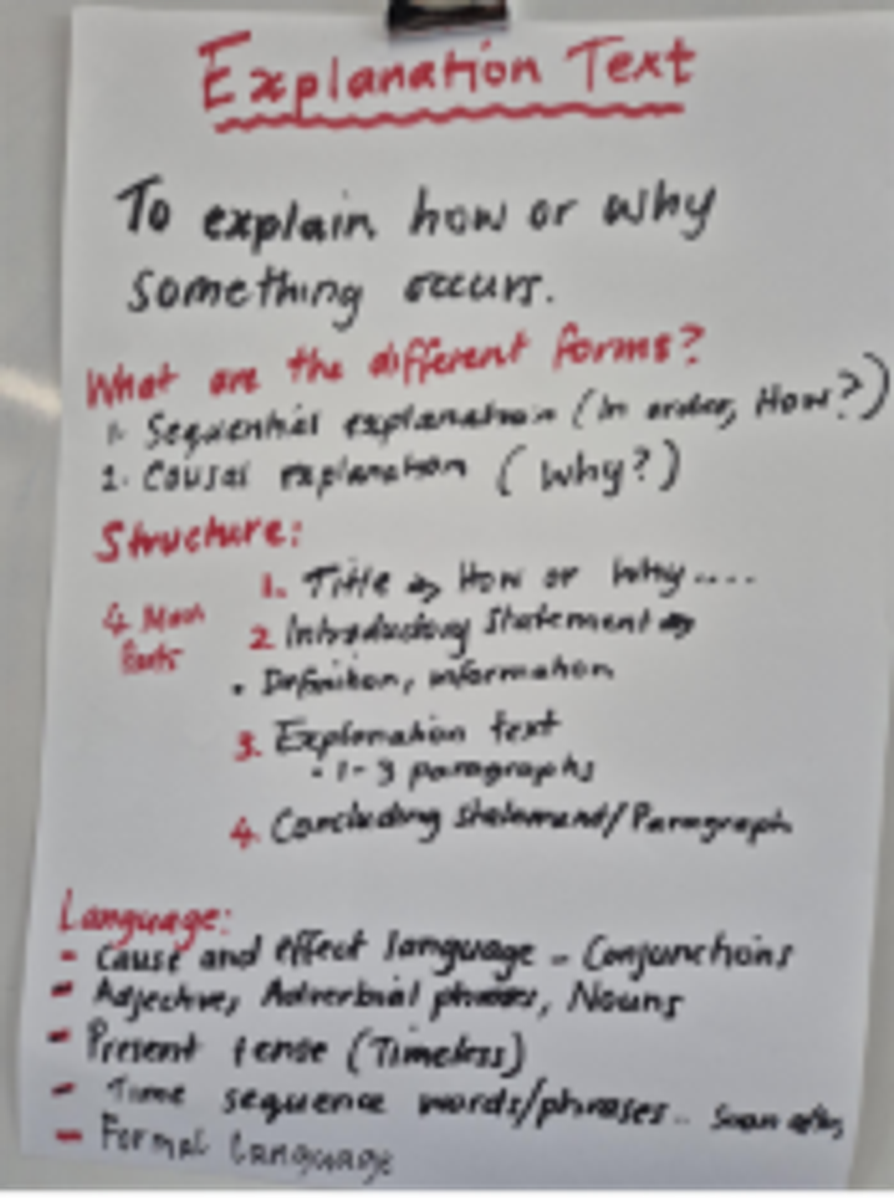 Explanation Text
To explain how or why
something occurs.
What are the different forms?
1. Sequential explanation (In order, How?)
2. Causal explanation (Why?)
Structure:
1. Title → How or Why....
4 Main
Parts
2 Introductory Statement →
• Definition, information
3. Explanation text
• 1-3 paragraphs
4. Concluding Statement/Paragraph
Language:
- Cause and effect language - Conjunctions
- Adjective, Adverbial phrases, Nouns
- Present tense (Timeless)
- Time sequence words/phrases.. Soon after,
- Formal Language